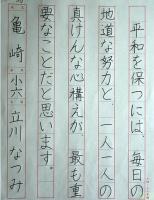 平和を保つには、毎日の
地道な努力と、一人一人の
真けんな心構えが、最も重
要なことだと思います。
亀崎小六 立川なつみ